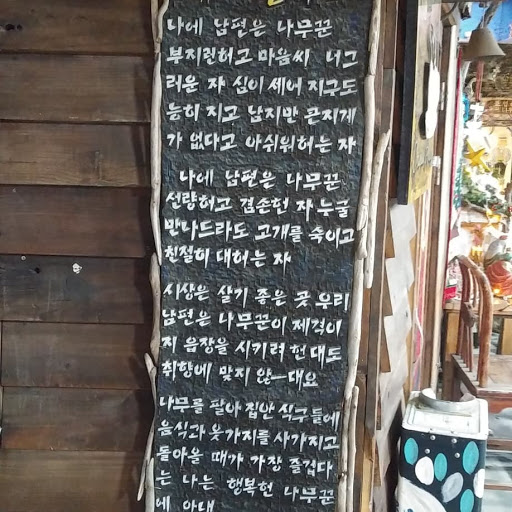 나에 남편은 나무꾼
부지런허고 마음씨 너그
러운 자 심이 세어 지구도
능히 지고 남지만 곤지게
가 없다고 아쉬워허는 자
나에 남편은 나무꾼
선량허고 겸손헌 자 누굴
만나드라도 고개를 숙이고
친절히 대허는 자
사상은 살기 좋은 곳 우리
남편은 나무꾼이 제격이
지 읍장을 시키려 헌대도
취향에 맞지 않一대요
나무를 팔아 집안 식구들에
음식과 옷가지를 사가지고
돌아올 때가 가장 즐겁다
는 나는 행복헌 나무꾼
에 아내